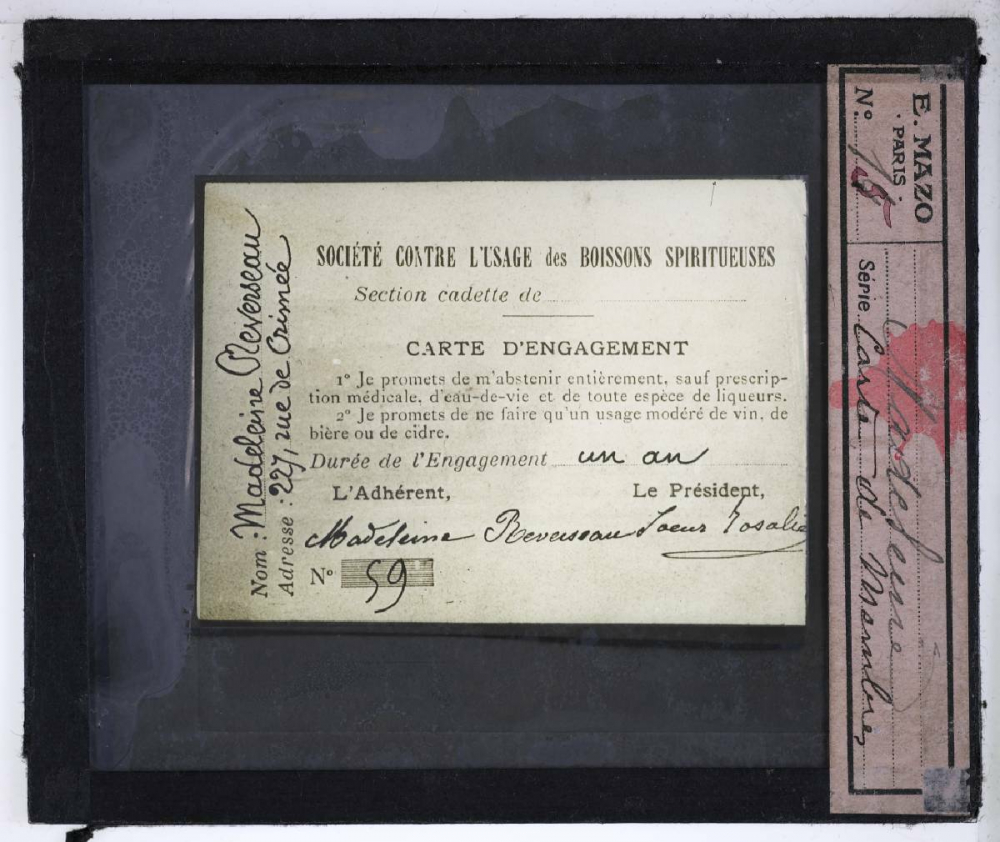 SOCIÉTÉ CONTRE L'USAGE des BOISSONS SPIRITUEUSES
Section cadette de
CARTE D'ENGAGEMENT
1° Je promets de m'abstenir entièrement, sauf prescrip-
tion médicale, d'eau-de-vie et de toute espèce de liqueurs.
2° Je promets de ne faire qu'un usage modéré de vin, de
bière ou de cidre.
Durée de l'Engagement un an
L'Adhérent, Le Président,
Madeleine Reverseau Soeur Rosalie
N° 59
Nom : Madeleine Reverseau
Adresse : 227, rue de Crimée
E. MAZO
PARIS.
N°
Série Carte de Membres
Madeleine